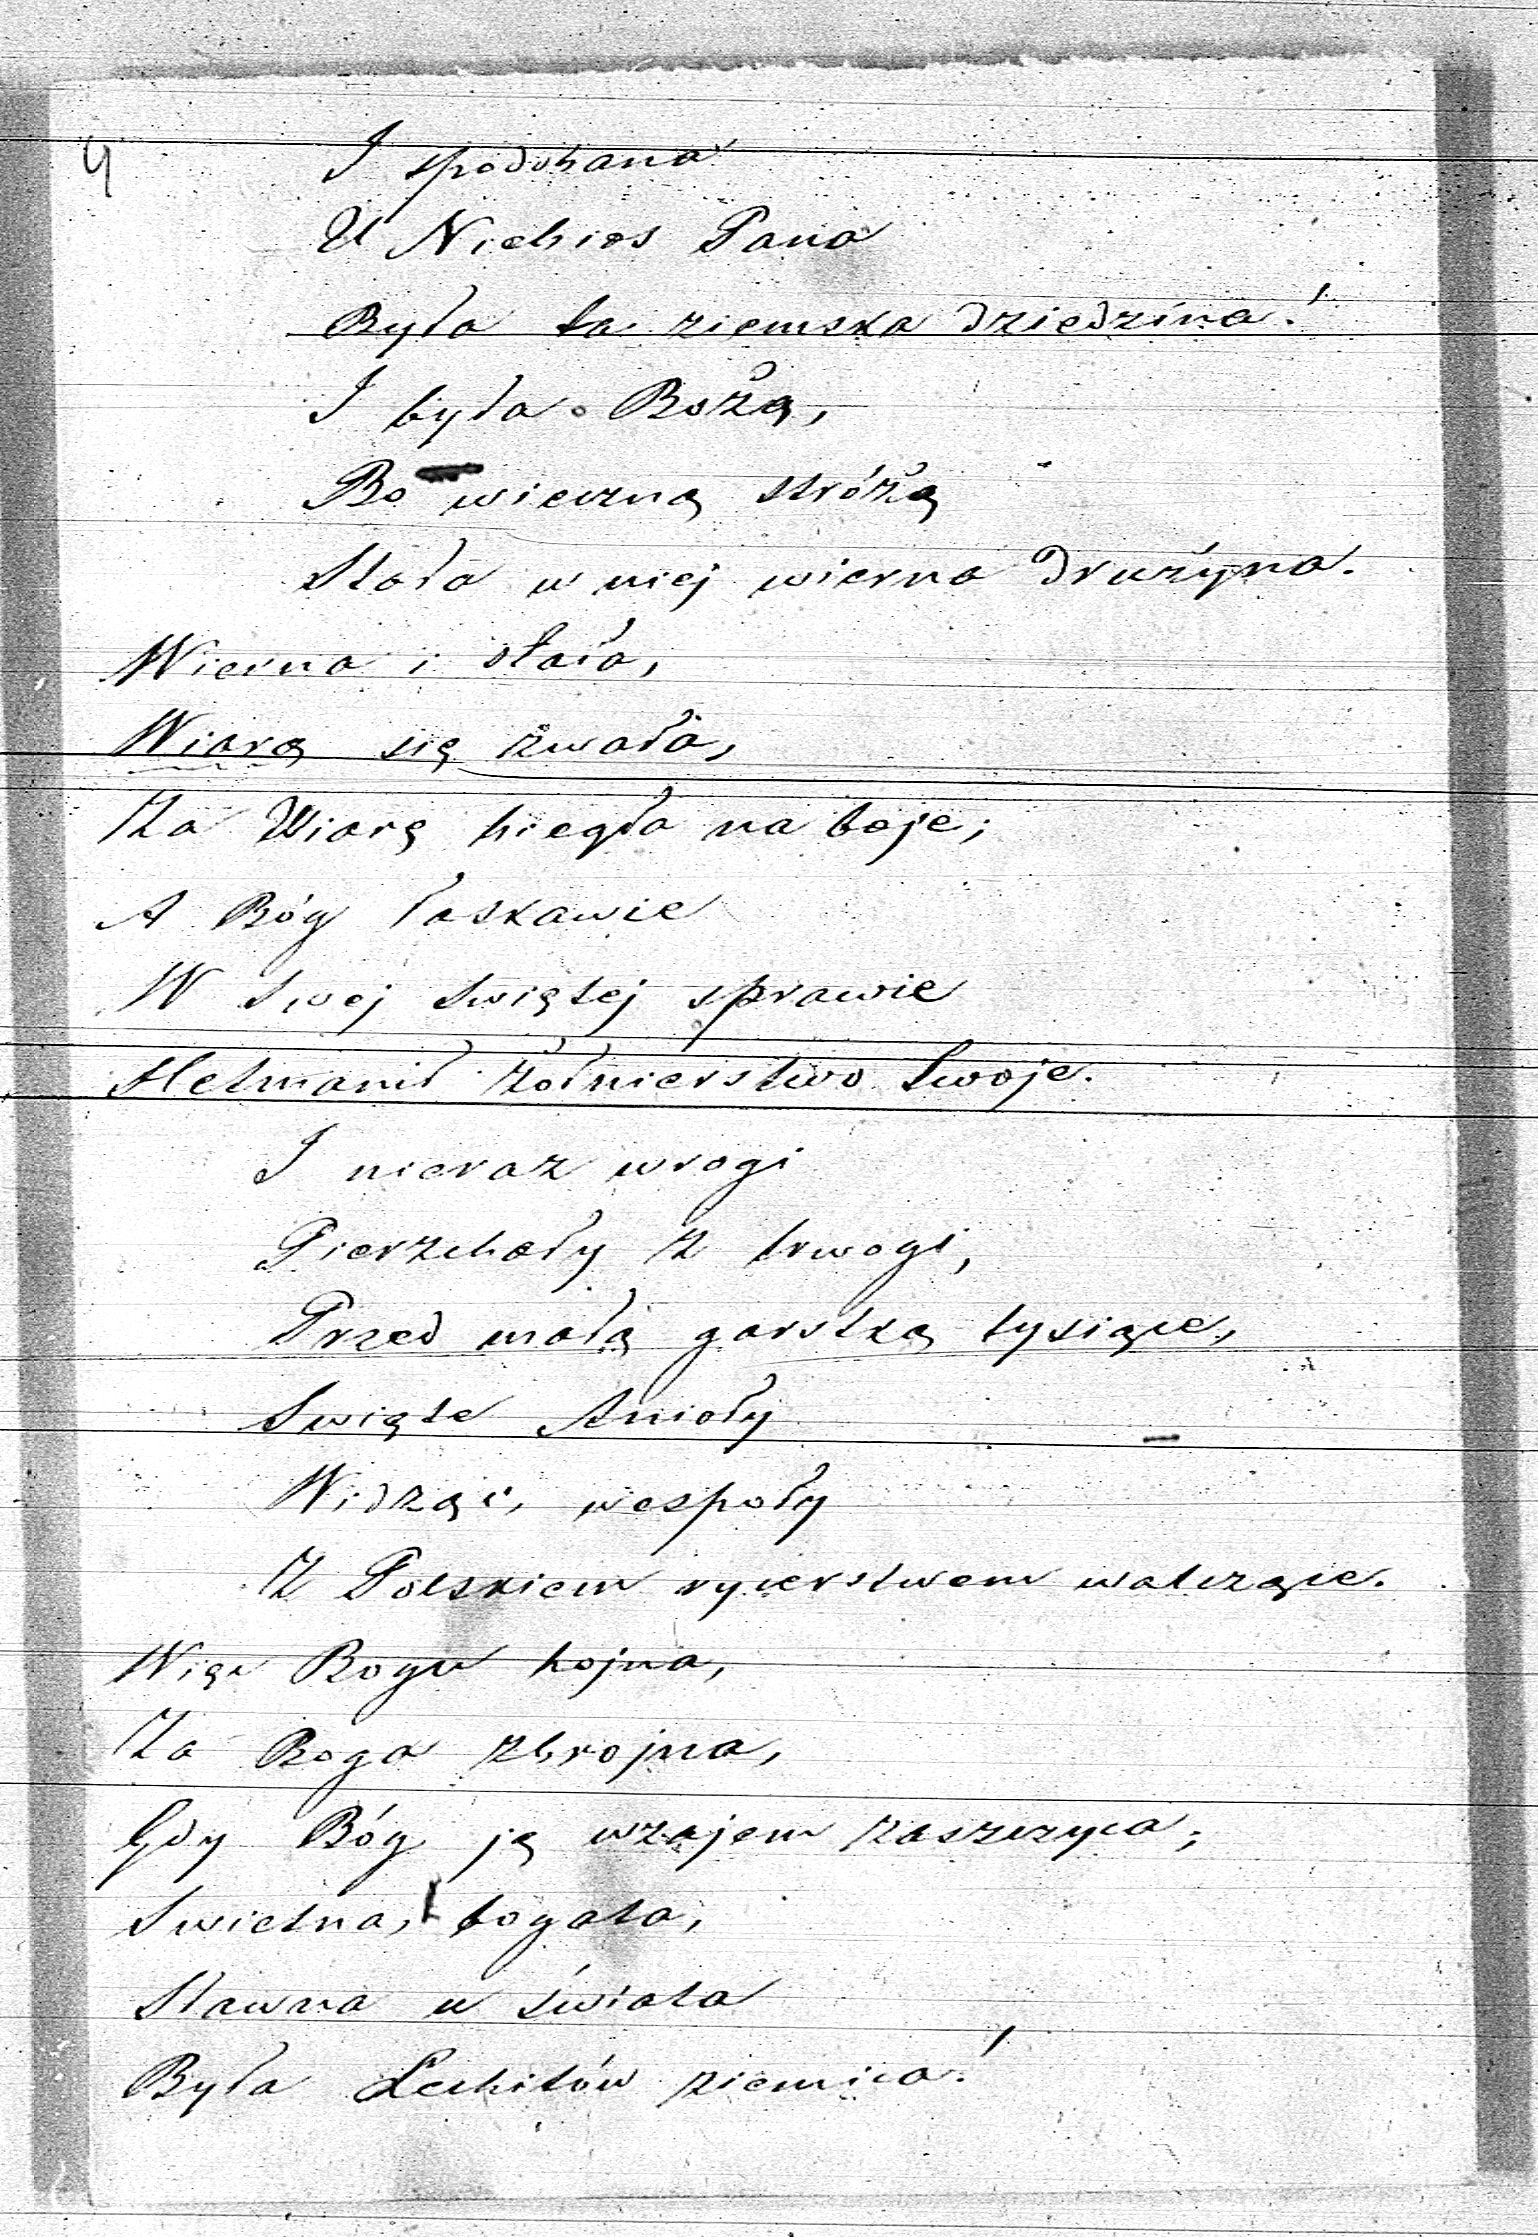 4
I spodobana
U Niebios Pana
Była ta ziemska dziedzina!
I była Bożą,
Bo wieczną stróżą
Stała w niej wierna drużyna.
Wierna i stała,
Wiarą się zwała,
Za Wiarę biegła na boje;
A Bóg łaskawie
W Swej Swiętej sprawie
Hetmanił żołnierstwo Swoje.
I nieraz wrogi
Pierzchały z trwogi,
Przed małą garstką tysiące,
Swięte Anioły
Widząc, wespoły
Z Polskiem rycerstwem walczące.
Więc Bogu hojna,
Za Boga zbrojna,
Gdy Bóg ją wzajem zaszczyca;
Swietna, bogata,
Sławna u świata
Była Lechitów ziemica!